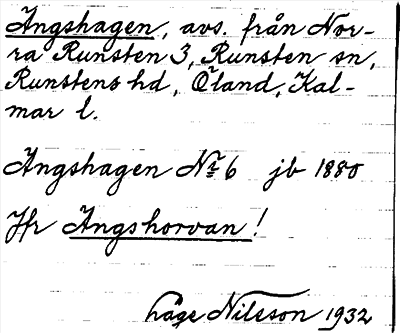 Ängshagen, avs. från Nor-
ra Runsten 3, Runsten sn,
Runstens hd, Öland, Kal-
mar l.
Ängshagen Nr 6 jb 1880
Jfr Ängshorvan!
Håge Nilsson 1932